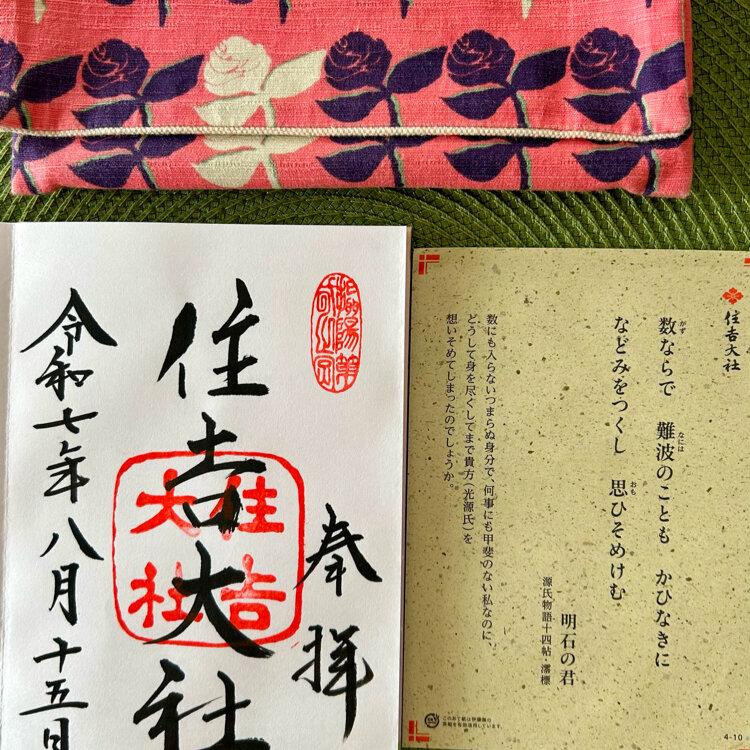 奉拝
住吉大社
住吉
大社
令和七年八月十五日
住吉大社
数ならで　難波のことも　かひなきに
かず
なには
などみをつくし　思ひそめけむ
おも
明石の君
源氏物語十四帖 澪標
数にも入らないつまらぬ身分で、何事にも甲斐のない私なのに、
どうして身を尽くしてまで貴方(光源氏)を
想いそめてしまったのでしょうか。
このあて紙は伊藤園の
茶殻を有効活用しています。
4-10